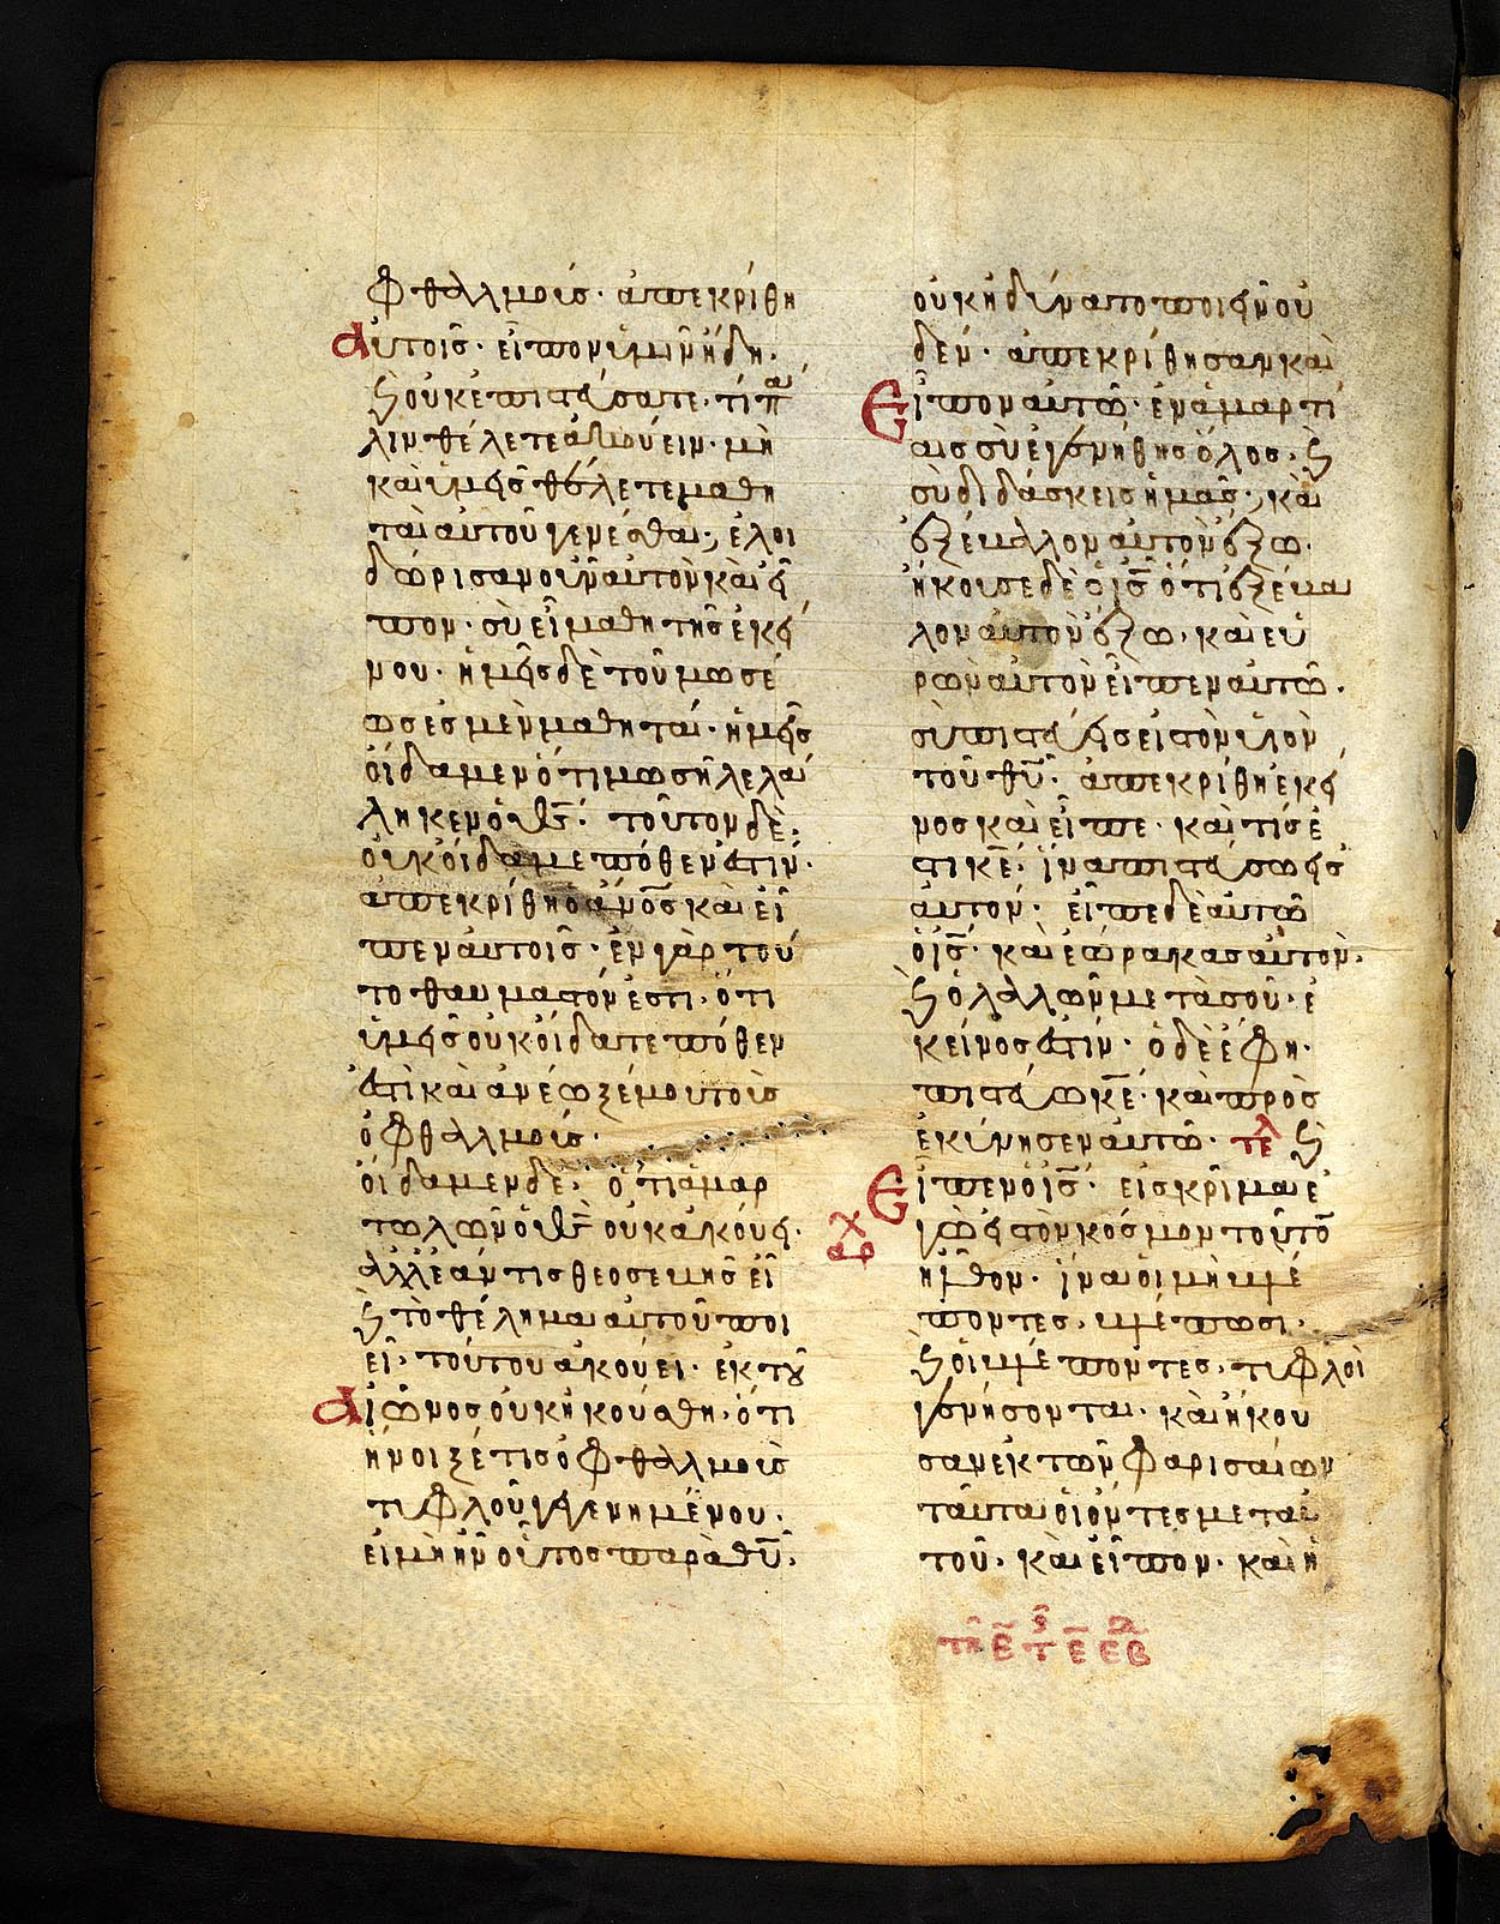 φθαλμούς· ἀπεκρίθη
αὐτοῖς· εἶπον ὑμῖν ἤδη·
ϗ οὐκ ἐπιστεύσατε· τί πα
λιν θέλετε ἀκούειν· μὴ
καὶ ὑμεῖς θέλετε μαθη
ταὶ αὐτοῦ γενέσθαι; ἐλοι
δώρισαν οὖν αὐτὸν καὶ εἶ
πον· σὺ εἶ μαθητὴς ἐκεί
νου· ἡμεῖς δὲ τοῦ μωσέ
ωσ ἐσμὲν μαθηταί· ἡμεῖς
οἴδαμεν ὅτι μωσῆ λελά
ληκεν ὁ θς̅· τοῦτον δὲ,
οὐκ οἴδαμε πόθεν ἐστίν·
ἀπεκρίθη ὁ ἄνο̅ς καὶ εἶ
πεν αὐτοῖς· ἐν γὰρ τού
το θαυμαστόν ἐστι, ὅτι
ὑμεῖς οὐκ οἴδατε πόθεν
ἐστὶ καὶ ἀνέωξέ μου τοὺς
ὀφθαλμούς·
οἴδαμεν δὲ, ὅτι ἁμαρ
τωλῶν ὁ θς̅ οὐκ ἀκούει·
ἀλλ' ἐάν τις θεοσεβὴς εἶ
ϗ τὸ θέλημα αὐτοῦ ποι
εῖ, τούτου ἀκούει· ἐκ τοῦ
αἰῶνος οὐκ ἠκούσθη, ὅτι
ἤνοιξέ τις ὀφθαλμοὺς
τυφλοῦ γεγενημένου·
εἰ μὴ ἦν οὗτος παρὰ θυ̅,
οὐκ ἠδύνατο ποιεῖν οὐ
δέν· ἀπεκρίθησαν καὶ
εἶπον αὐτῶ· ἐν ἁμαρτί
αις σὺ ἐγενήθης ὅλος, ϗ
σὺ διδάσκεις ἡμᾶς; καὶ
ἐξέβαλον αὐτὸν ἔξω·
ἤκουσε δὲ ὁ ις̅ ὅτι ἐξέβα
λον αὐτὸν ἔξω, καὶ εὑ
ρὼν αὐτὸν εἶπεν αὐτῶ·
σὺ πιστεύεις εἰς τὸν υἱὸν
τοῦ θυ̅· ἀπεκρίθη ἐκεῖ
νος καὶ εἶπε· καὶ τίς ἐ
στι κε̅· ἵνα πιστεύσω εἰς
αὐτόν· εἶπε δὲ αὐτῶ
ὁ ις̅· καὶ ἑώρακας αὐτὸν,
ϗ ὁ λαλῶν μετὰ σοῦ, ἐ
κεῖνος ἐστίν· ὁ δὲ ἔφη·
πιστεύω κε̅· καὶ προσ
εκύνησεν αὐτῶ· τελ ϗ
εἶπεν ὁ ις̅· εἰς κρῖμα ἐ
γὼ εἰς τὸν κόσμον τοῦτο̅
ἦλθον· ἵνα οἱ μὴ βλέ
ποντες, βλέπωσι,
ϗ οἱ βλέποντες, τυφλοὶ
γένησονται· καὶ ἤκου
σαν ἐκ τῶν φαρισαίων
ταῦτα οἱ ὄντες μετ' αὐ
τοῦ, καὶ εἶπον· καὶ ἡ
αρχ